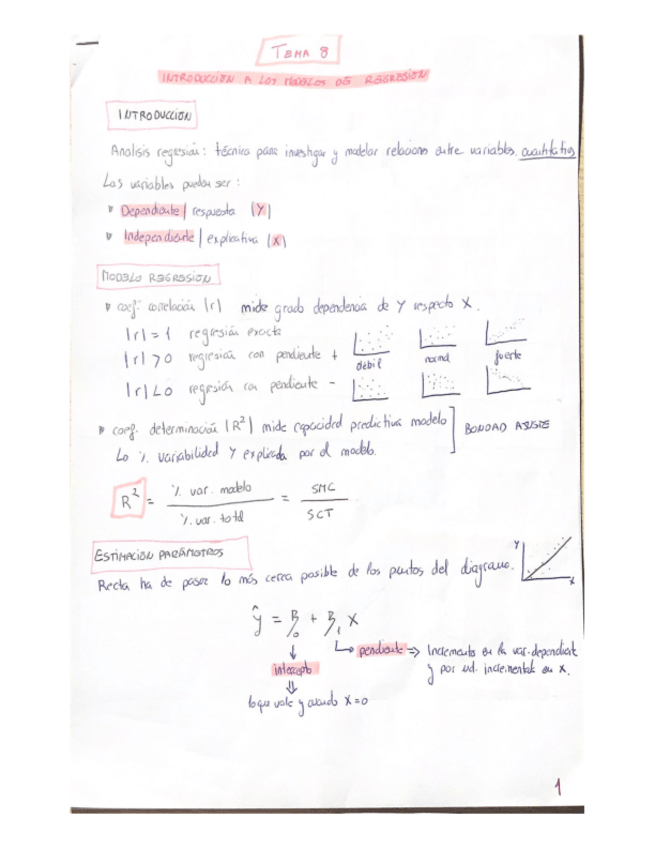 TEMA 8
INTRODUCCIÓN A LOS MODELOS DE REGRESIÓN
INTRODUCCIÓN
Analisis regresión: técnica para investigar y modelar relaciones entre variables cuantitativas
Las variables pueden ser:
Dependiente | respuesta (Y)
Independiente | explicativa (X)
MODELO REGRESION
coef. correlación |r| mide grado dependencia de Y respecto X.
|r| = 1 regresión exacta
|r| > 0 regresión con pendiente +
debil normal fuerte
|r| < 0 regresión con pendiente -
coef. determinación |R²| mide capacidad predictiva modelo
Lo % variabilidad Y explicada por el modelo.
BONDAD AJUSTE
R² = % var. modelo / % var. total = SMC / SCT
ESTIMACIÓN PARÁMETROS
Recta ha de pasar lo más cerca posible de los puntos del diagrama.
Y
X
ŷ = β₀ + β₁ X
pendiente ⇒ Incremento en la var. dependiente
y por ud. incremental en X.
intercepto
lo que vale y cuando X=0
1